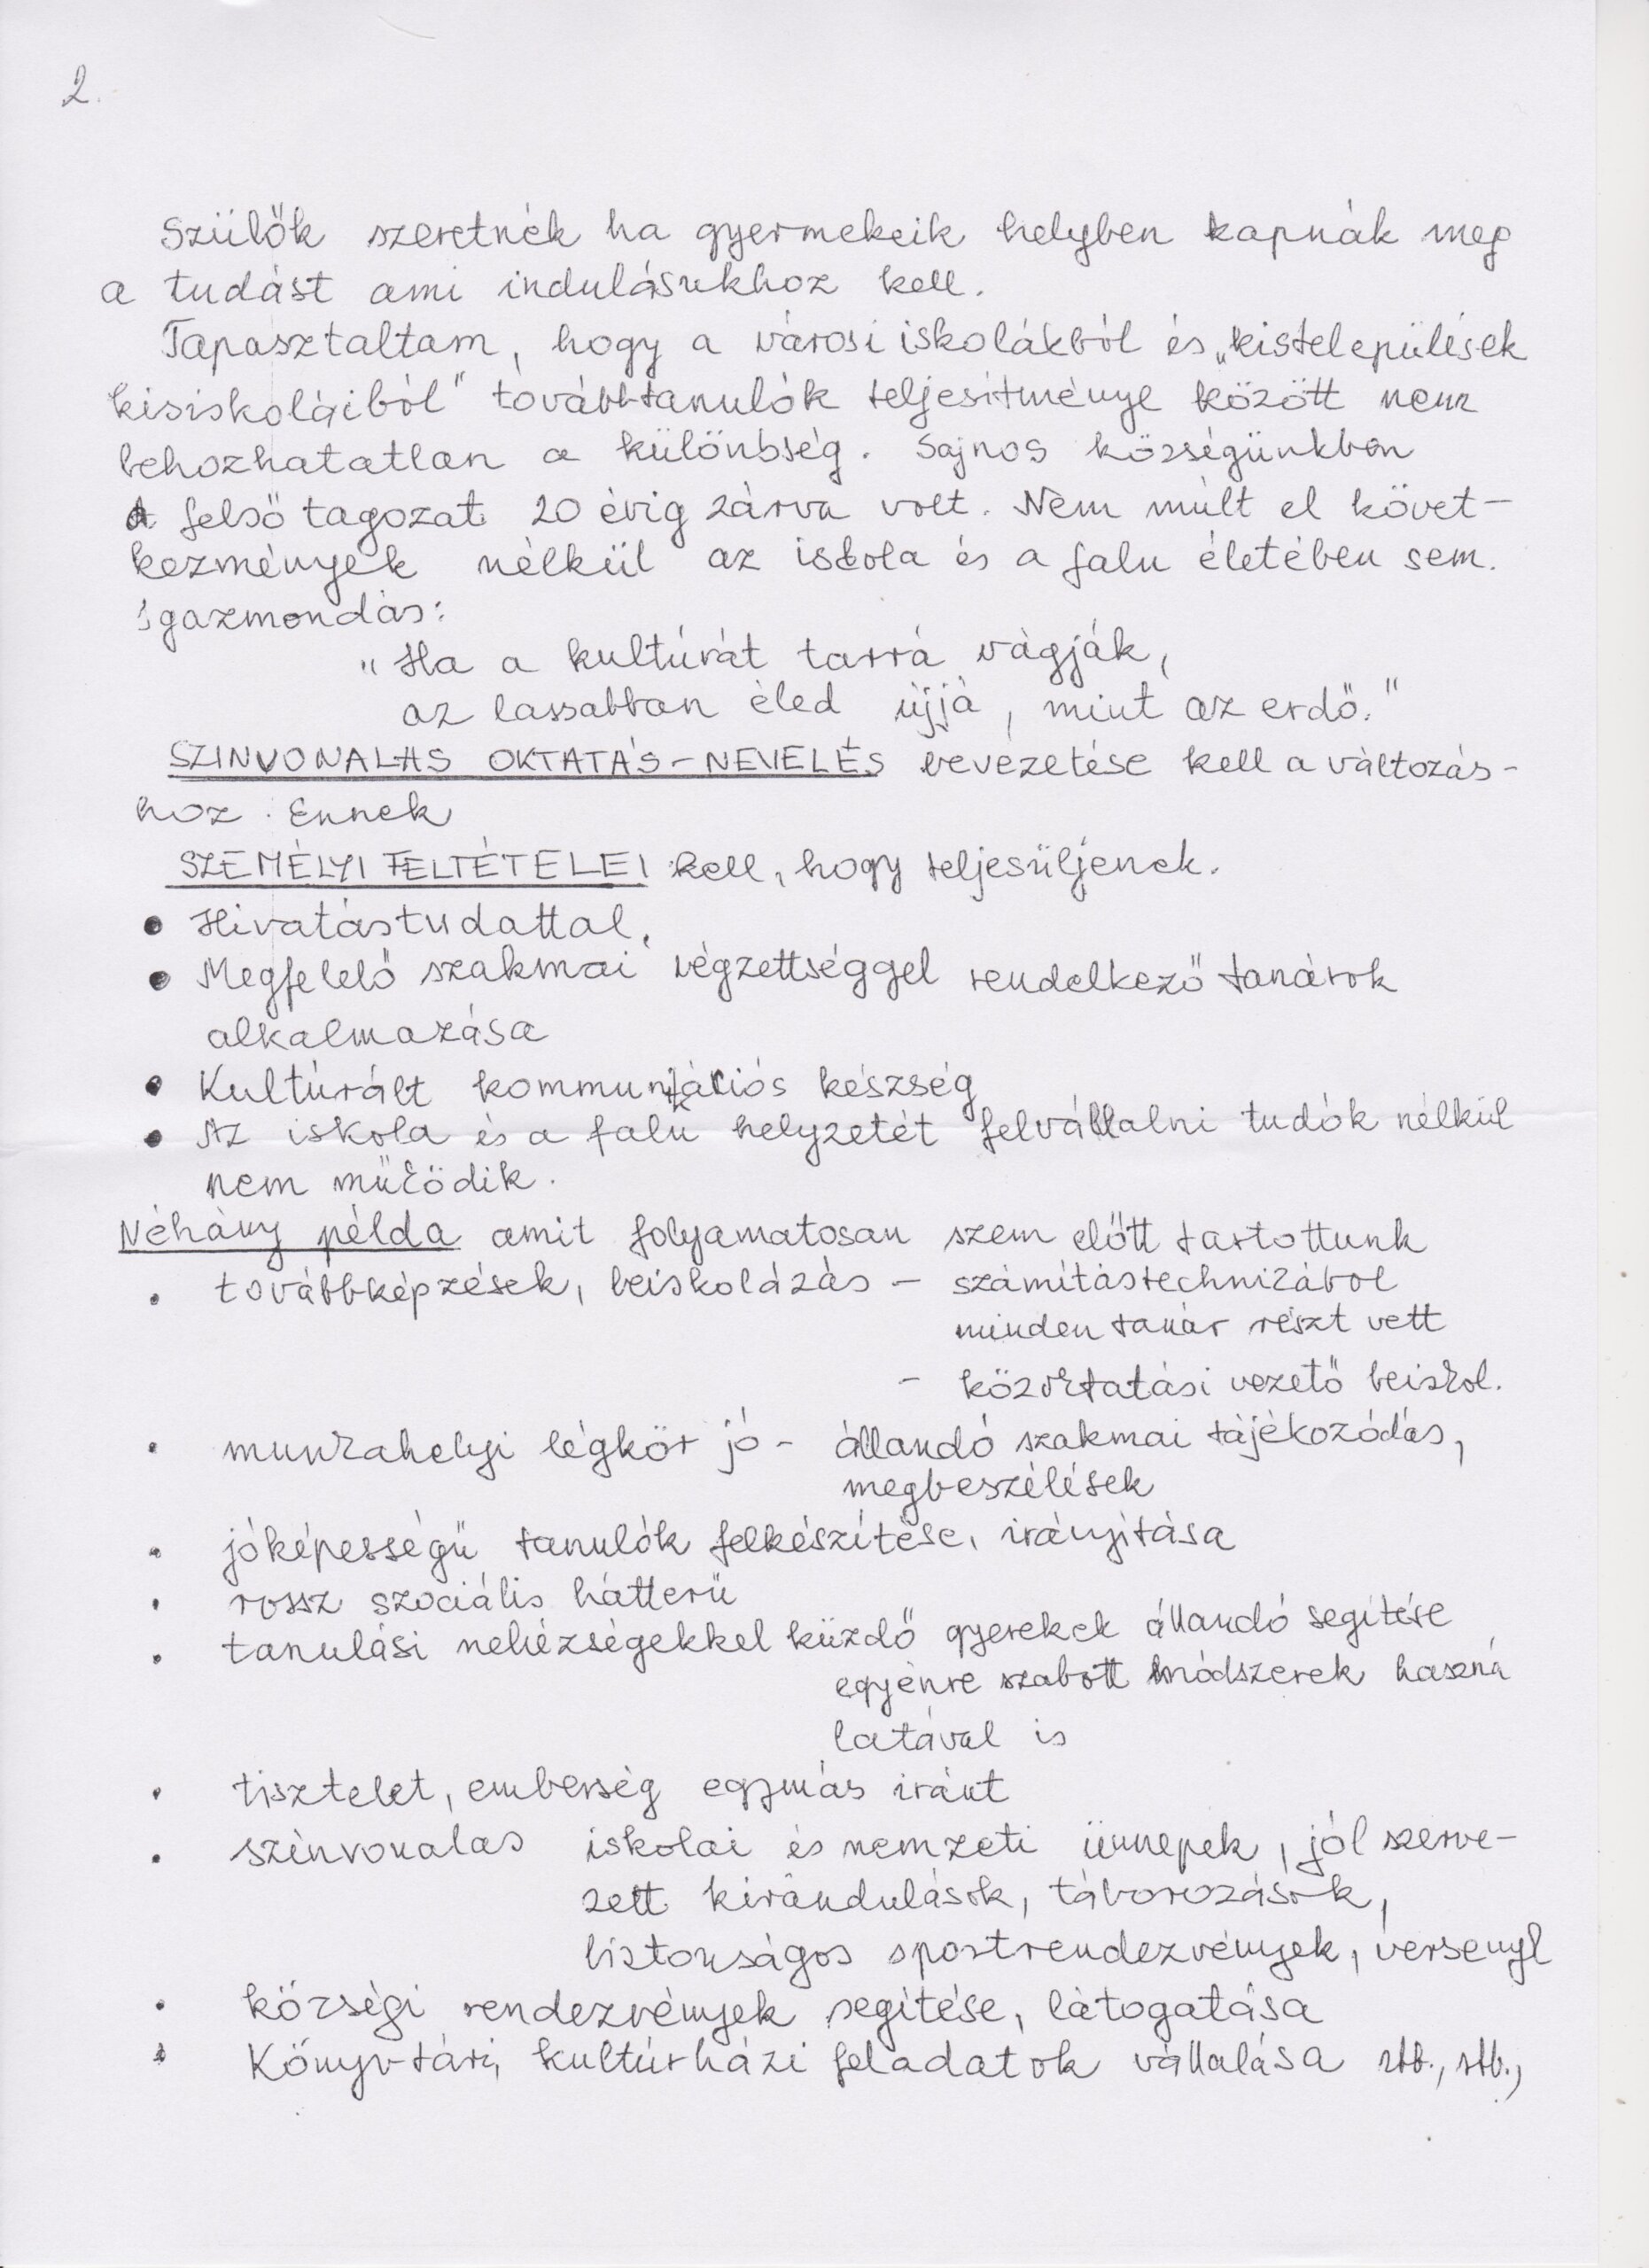 2.
Szülők szeretnék ha gyermekeik helyben kapnák meg
a tudást ami indulásukhoz kell.
Tapasztaltam, hogy a városi iskolákból és „kistelepülések
kisiskoláiból" továbbtanulók teljesítménye között nem
behozhatatlan a különbség. Sajnos községünkben
A felső tagozat 20 évig zárva volt. Nem múlt el követ-
kezmények nélkül az iskola és a falu életében sem.
Igazmondás:
"Ha a kultúrát tarrá vágják,
az lassabban éled újjá, mint az erdő."
SZINVONALAS OKTATÁS-NEVELÉS bevezetése kell a változás-
hoz. Ennek
SZEMÉLYI FELTÉTELEI kell, hogy teljesüljenek.
• Hivatástudattal,
• Megfelelő szakmai végzettséggel rendelkező tanárok
alkalmazása
• Kultúrált kommunikációs készség
• Az iskola és a falu helyzetét felvállalni tudók nélkül
nem működik.
Néhány példa amit folyamatosan szem előtt tartottunk
• továbbképzések, beiskolázás - számítástechnikából
minden tanár részt vett
- közoktatási vezető beiskol.
• munkahelyi légkör jó - állandó szakmai tájékozódás,
megbeszélések
• jóképességű tanulók felkészítése, irányítása
• rossz szociális hátterű
• tanulási nehézségekkel küzdő gyerekek állandó segítése
egyénre szabott módszerek haszná
latával is
• tisztelet, emberség egymás iránt
• színvonalas iskolai és nemzeti ünnepek, jól szerve-
zett kirándulások, táborozások,
biztonságos sportrendezvények, versenyl
• községi rendezvények segítése, látogatása
• Könyvtári, kultúrházi feladatok vállalása stb., stb.,